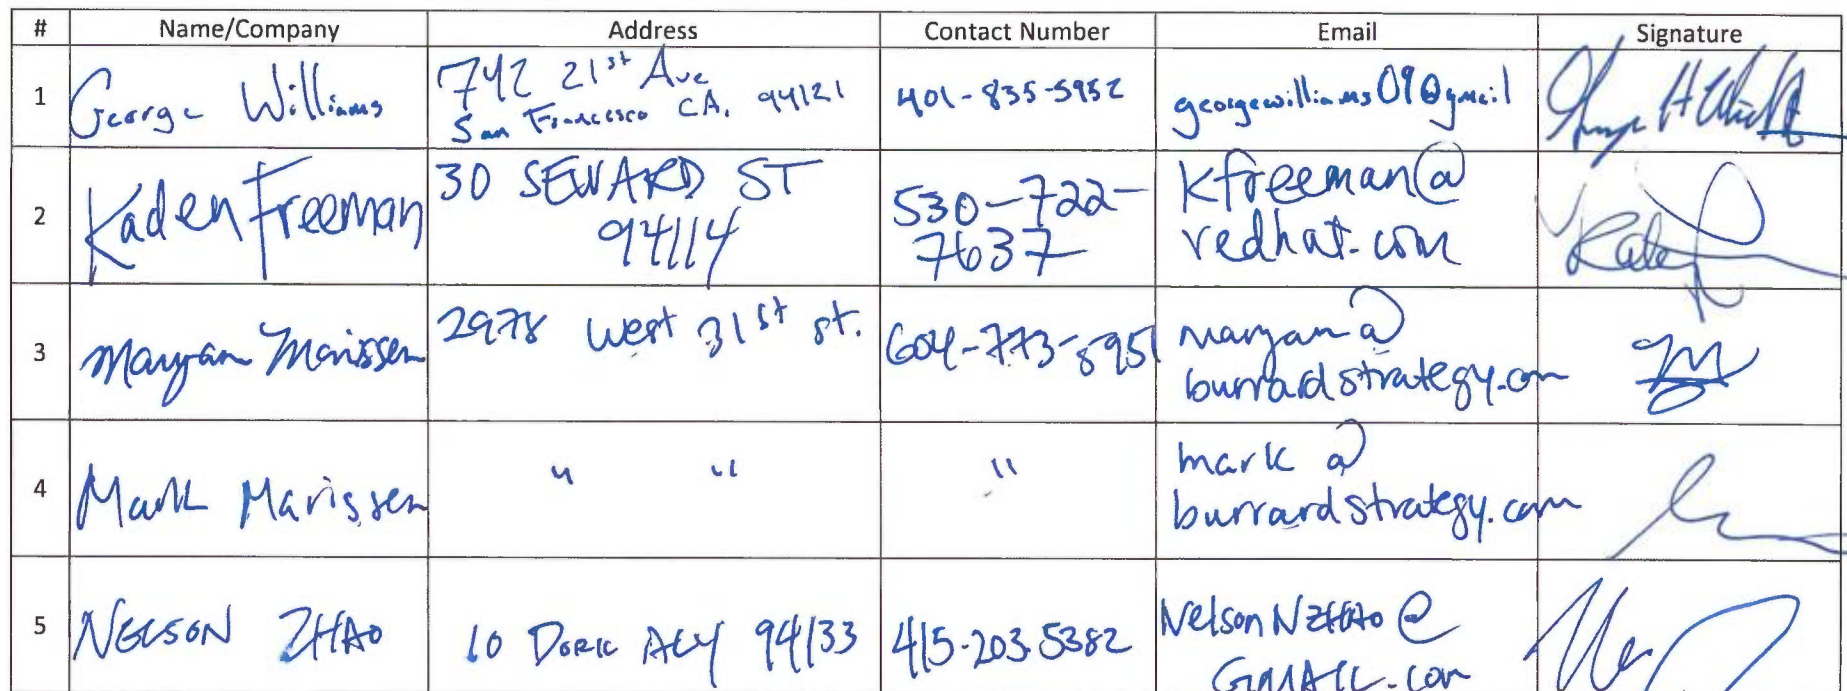 # Name/Company Address Contact Number Email Signature
1 George Williams 742 21st Ave San Francesco CA. 94121 401-835-5952 georgewilliams09@gmail
2 Kaden Freeman 30 SEWARD ST 94114 530-722-7637 kfreeman@redhat.com
3 Maryam Marissen 2978 West 31st st. 604-773-8951 maryam@burrardstrategy.com
4 Mark Marissen " " " mark@burrardstrategy.com
5 NELSON ZHAO 10 DORIC ALY 94133 415-203.5382 NelsonNZHAO@GMAIL.com